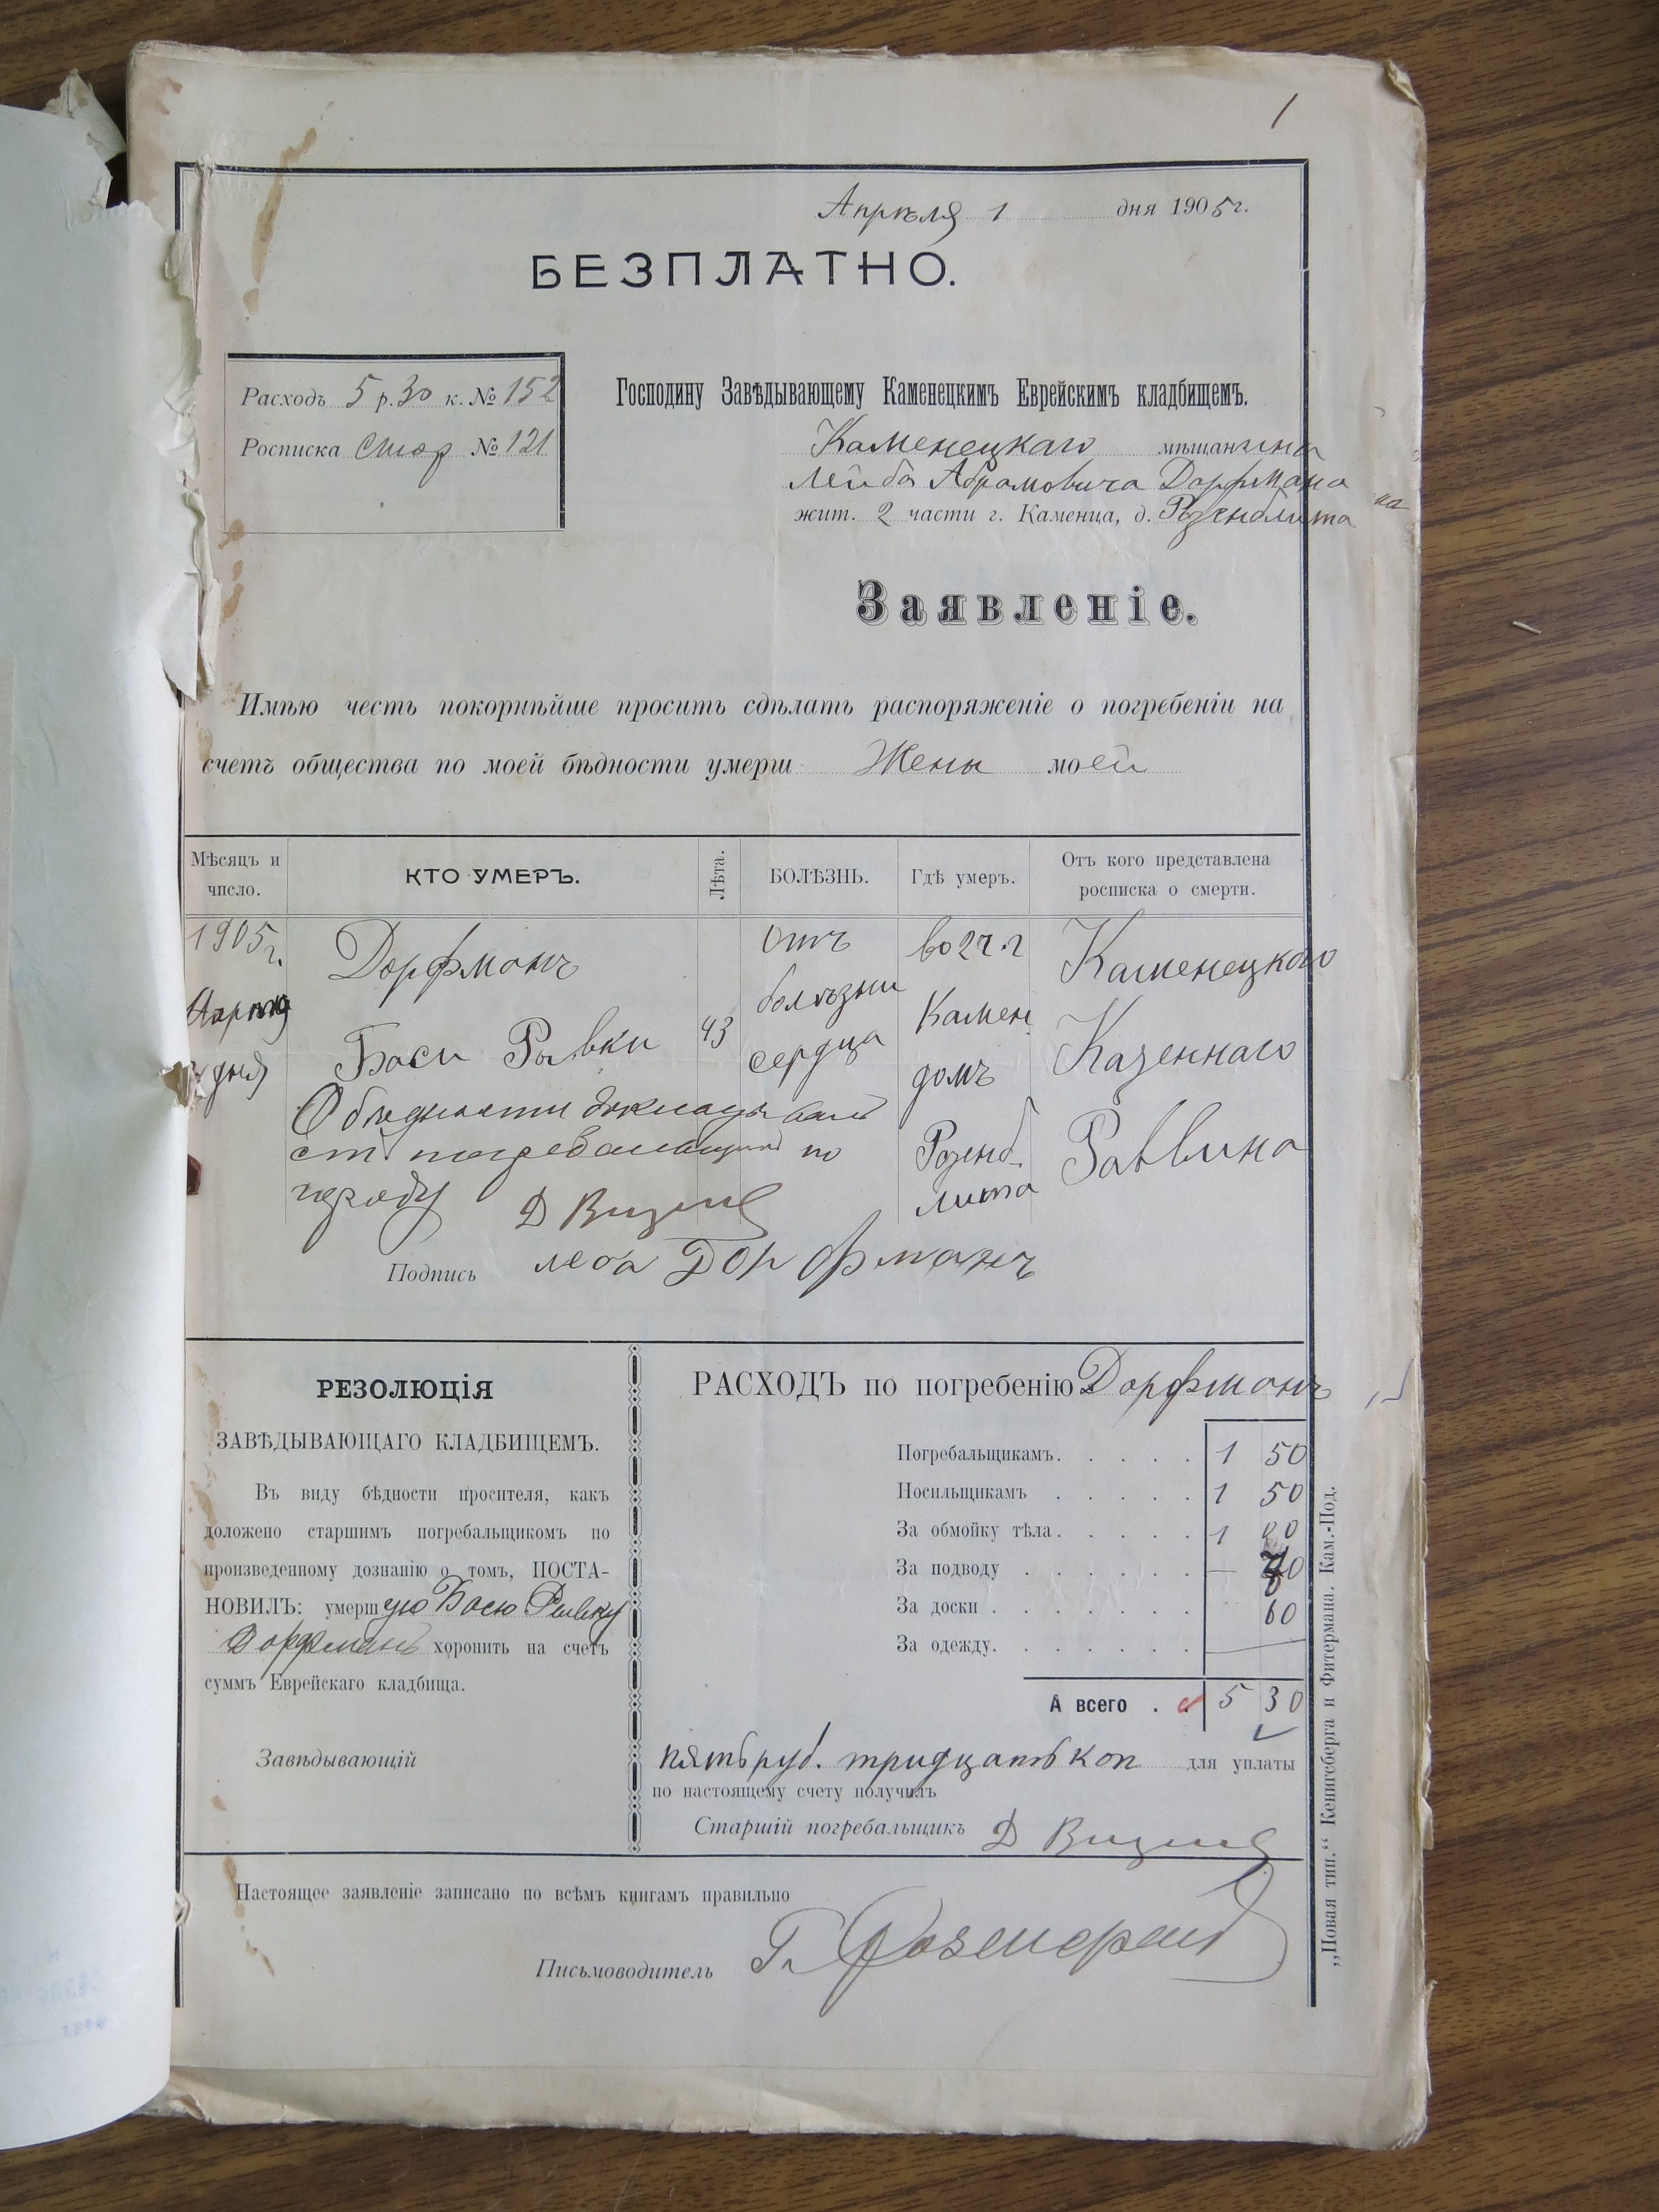 1
Апрѣля 1 дня 1905 г.
БЕЗПЛАТНО.
Расходъ 5 р. 30 к. № 152
Росписка стор № 121
Господину Завѣдывающему Каменецкимъ Еврейскимъ кладбищемъ.
Каменецкаго мѣщанина
Лейба Абрамовича Дорфмана
жит. 2 части г. Каменца, д. Розенблита
Заявленіе.
Имѣю честь покорнѣйше просить сдѣлать распоряженіе о погребеніи на
счетъ общества по моей бѣдности умерш Жены моей
Мѣсяцъ и число.
КТО УМЕРЪ.
Лѣта.
БОЛѢЗНЬ.
Гдѣ умеръ.
Отъ кого представлена росписка о смерти.
1905 г.
Апрѣля
дня
Дорфманъ
Баси Рывки
43
Отъ
болѣзни
сердца
во 2 ч. г
Камен.
домъ
Розенб-
лита
Каменецкаго
Казеннаго
Раввина
О бѣдности докладывалъ
ст. погребальщикъ по
Подпись Леба Дорфманъ
РЕЗОЛЮЦІЯ
ЗАВѢДЫВАЮЩАГО КЛАДБИЩЕМЪ.
Въ виду бѣдности просителя, какъ
доложено старшимъ погребальщикомъ по
произведенному дознанію о томъ, ПОСТА-
НОВИЛЪ: умершую Басю Рывку
Дорфманъ хоронить на счетъ
суммъ Еврейскаго кладбища.
Завѣдывающій
РАСХОДЪ по погребенію Дорфманъ
Погребальщикамъ. . . . . 1 50
Носильщикамъ . . . . . 1 50
За обмойку тѣла. . . . . 1 00
За подводу . . . . . . — 70
За доски . . . . . . . 60
За одежду. . . . . . . —
А всего . . 5 30
пять руб. тридцать коп для уплаты
по настоящему счету получилъ
Старшій погребальщикъ Д
Настоящее заявленіе записано по всѣмъ книгамъ правильно
Письмоводитель Г.
„Новая тип.“ Кенигсберга и Фитермана. Кам.-Под.